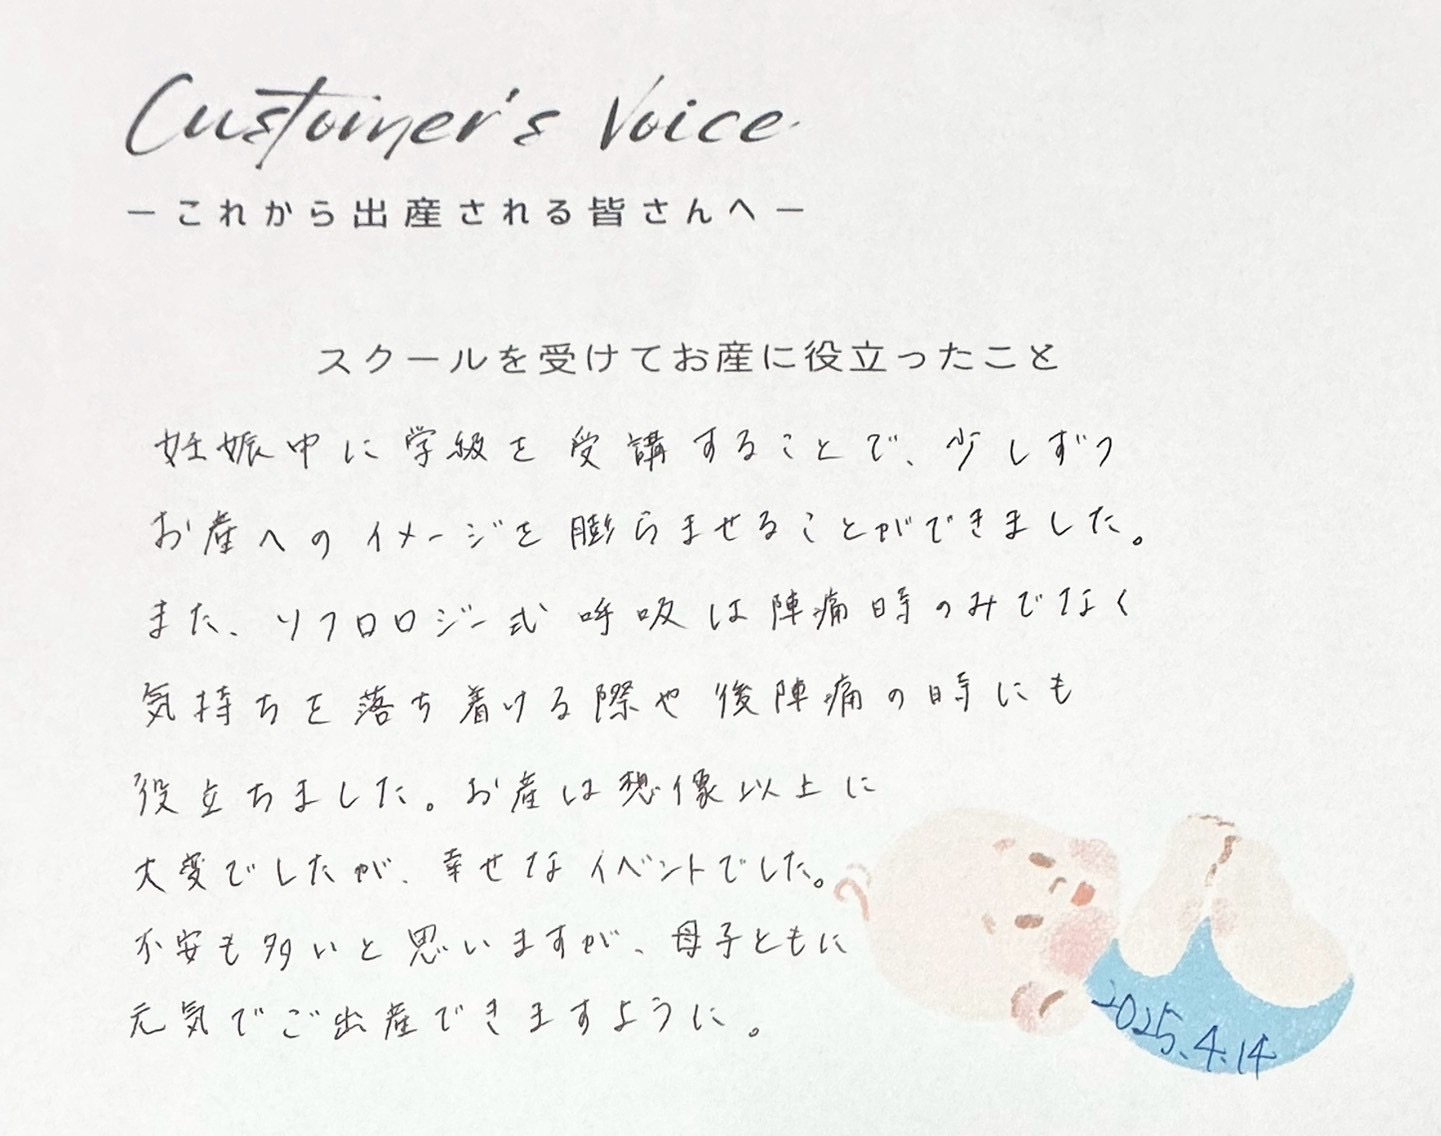 Customer's Voice
－これから出産される皆さんへ－
スクールを受けてお産に役立ったこと
妊娠中に学級を受講することで、少しずつ
お産へのイメージを膨らませることができました。
また、ソフロロジー式呼吸は陣痛時のみでなく
気持ちを落ち着ける際や後陣痛の時にも
役立ちました。お産は想像以上に
大変でしたが、幸せなイベントでした。
不安も多いと思いますが、母子ともに
元気でご出産できますように。
2025.4.14